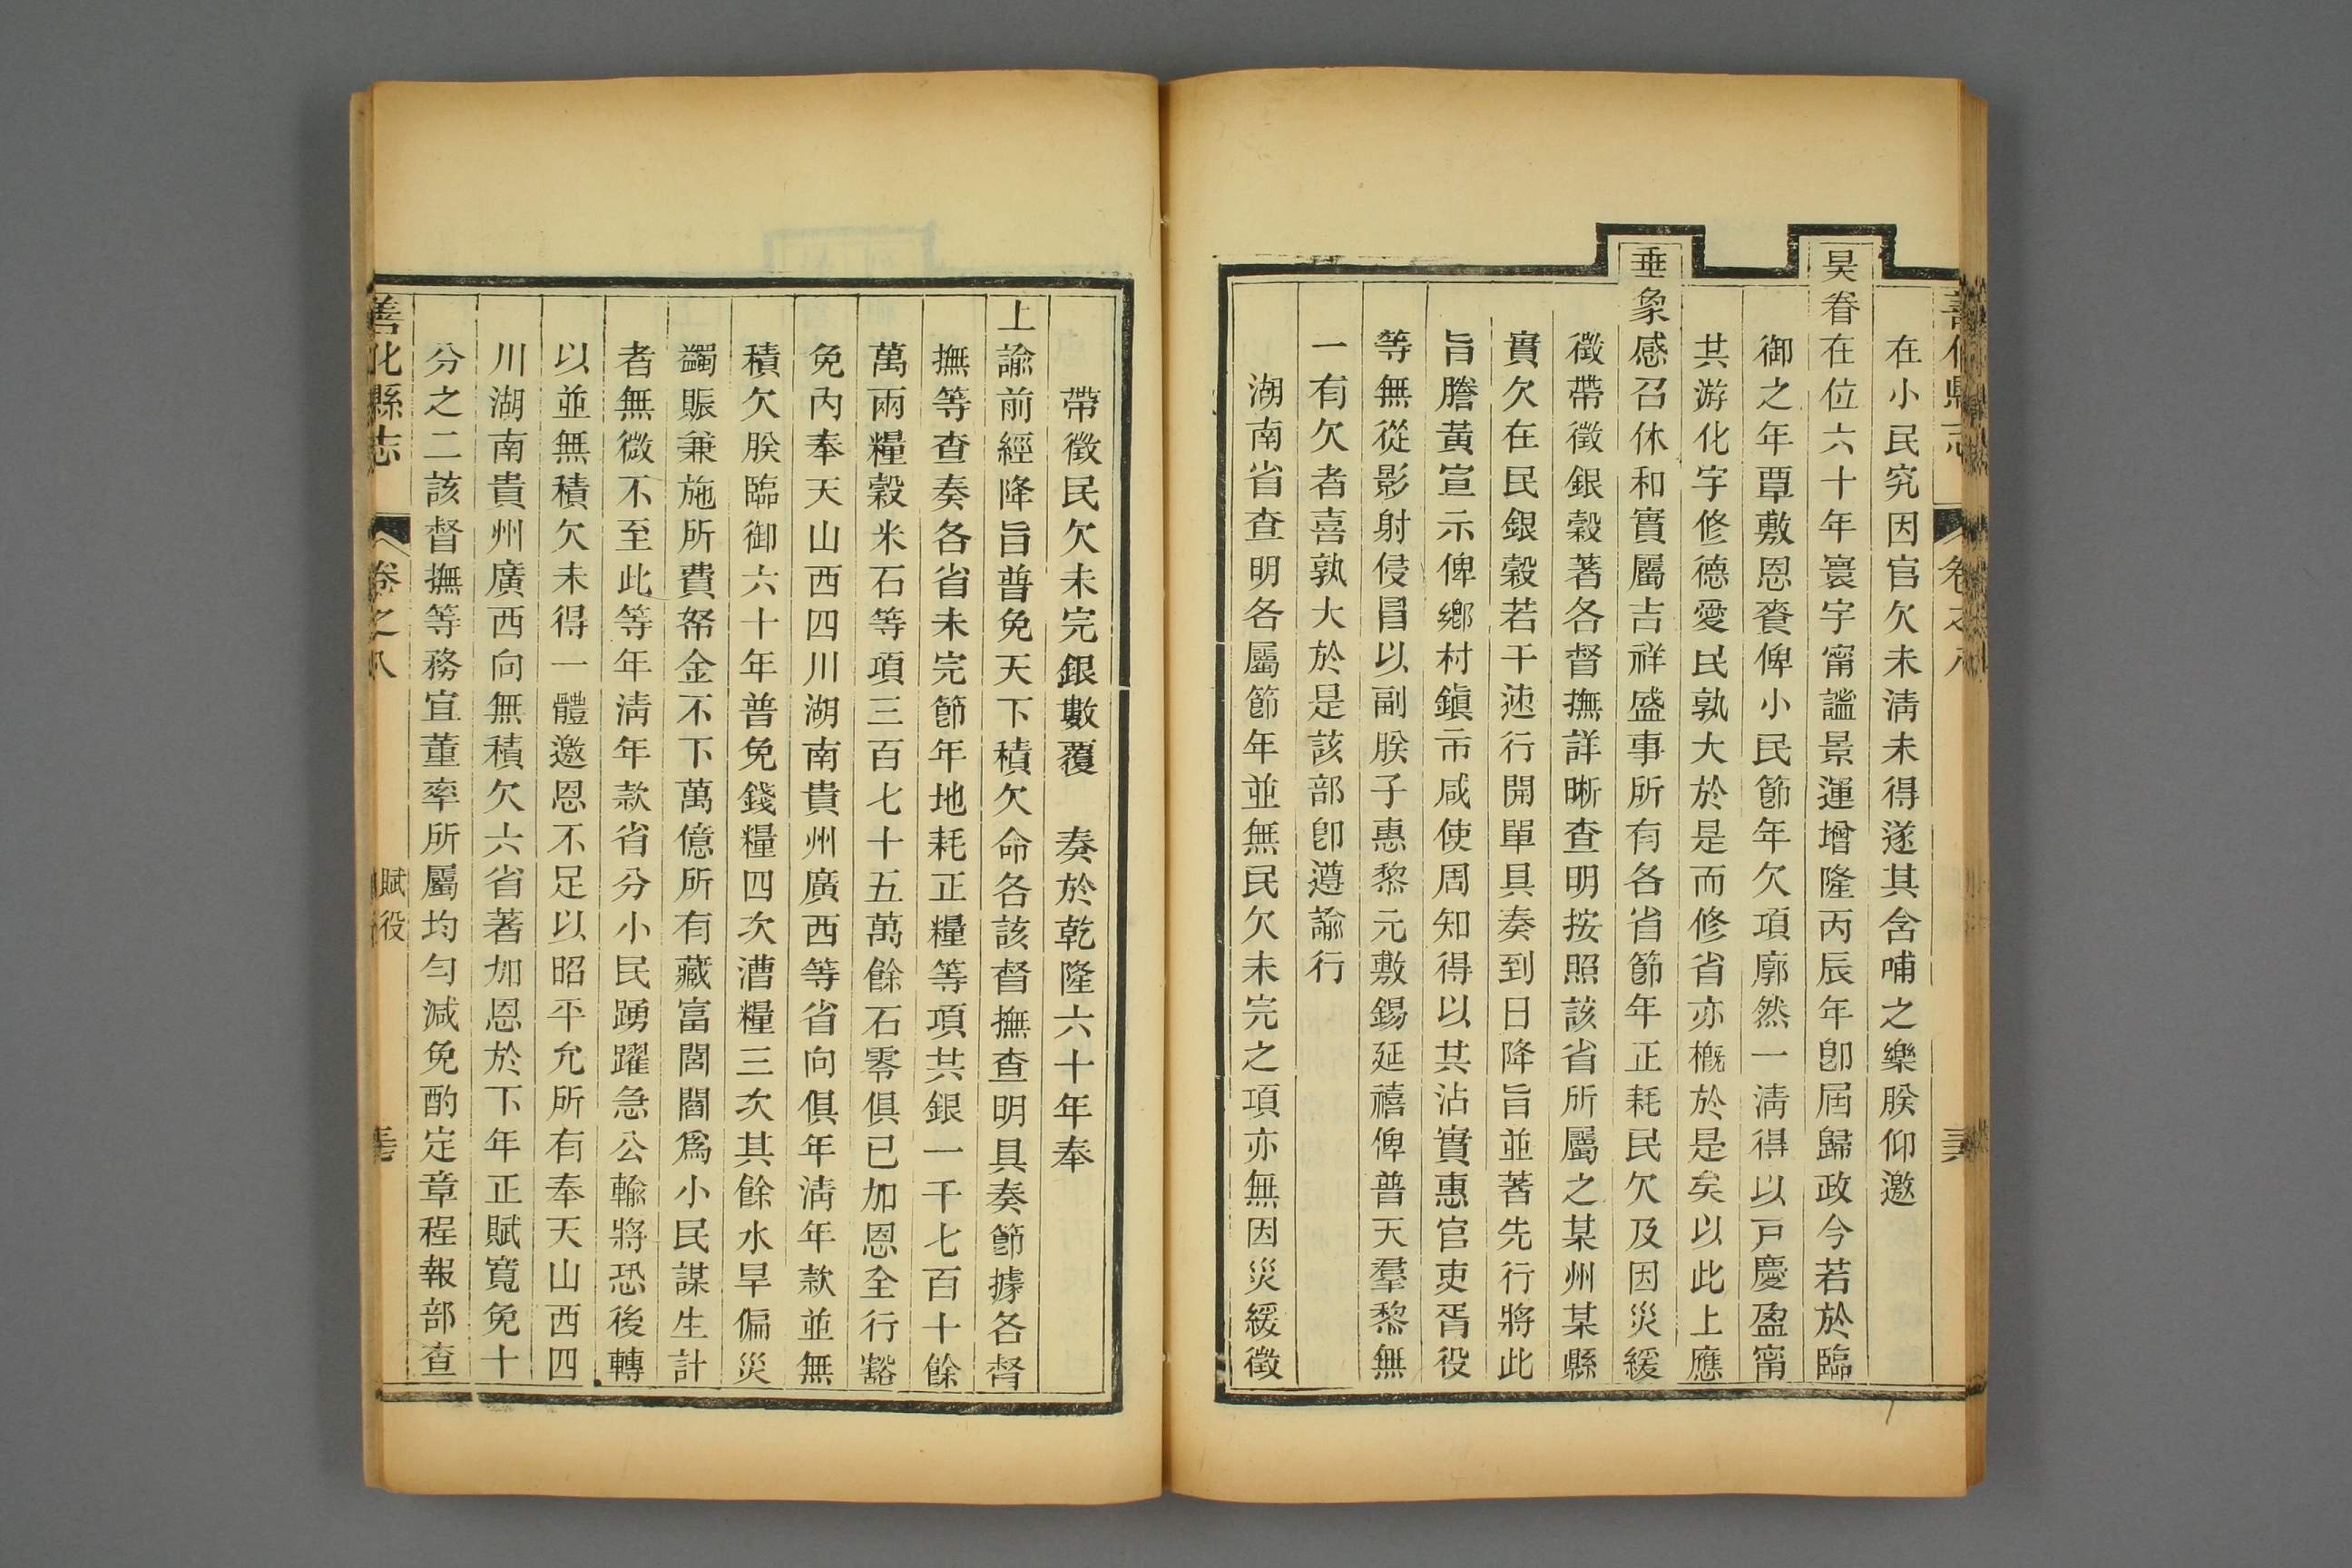 善化縣志 卷之八
在小民究因官欠未淸未得遂其含哺之樂朕仰邀
昊眷在位六十年寰宇甯謐景運增隆丙辰年卽屆歸政今若於臨
御之年覃敷恩賚俾小民節年欠項廓然一淸得以戸慶盈甯
共游化宇修德愛民孰大於是而修省亦槪於是矣以此上應
垂象感召休和實屬吉祥盛事所有各省節年正耗民欠及因災緩
徵帶徵銀穀著各督撫詳晰查明按照該省所屬之某州某縣
實欠在民銀穀若干速行開單具奏到日降旨並著先行將此
旨謄黃宣示俾鄕村鎭市咸使周知得以共沾實惠官吏胥役
等無從影射侵冒以副朕子惠黎元敷錫延禧俾普天羣黎無
一有欠者喜孰大於是該部卽遵諭行
湖南省查明各屬節年並無民欠未完之項亦無因災緩徵
帶徵民欠未完銀數覆 奏於乾隆六十年奉
上諭前經降旨普免天下積欠命各該督撫查明具奏節據各督
撫等查奏各省未完節年地耗正糧等項共銀一千七百十餘
萬兩糧穀米石等項三百七十五萬餘石零俱已加恩全行豁
免內奉天山西四川湖南貴州廣西等省向俱年淸年款並無
積欠朕臨御六十年普免錢糧四次漕糧三次其餘水旱偏災
蠲賑兼施所費帑金不下萬億所有藏富閭閻爲小民謀生計
者無微不至此等年淸年款省分小民踴躍急公輸將恐後轉
以並無積欠未得一體邀恩不足以昭平允所有奉天山西四
川湖南貴州廣西向無積欠六省著加恩於下年正賦寬免十
分之二該督撫等務宜董率所屬均勻減免酌定章程報部查
善化縣志 卷之八 賦役